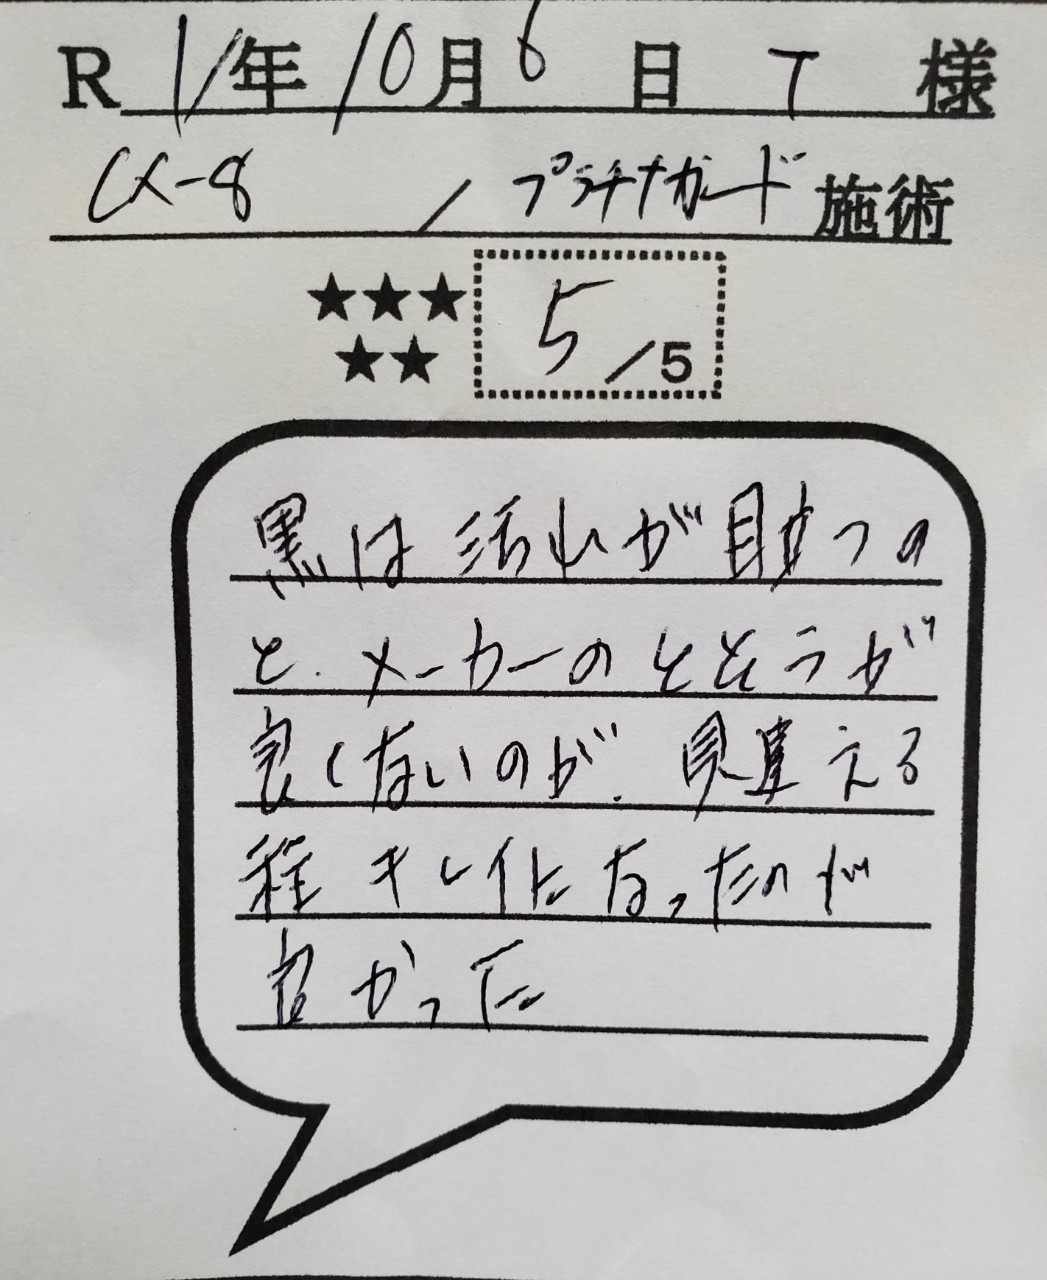 R 1/年 10月 6日 T 様
CX-8 / プラチナガード 施術
★★★
★★
5/5
黒は汚れが目立つの
と、メーカーのとそうが
良くないのが、見違える
程キレイになったのが
良かった